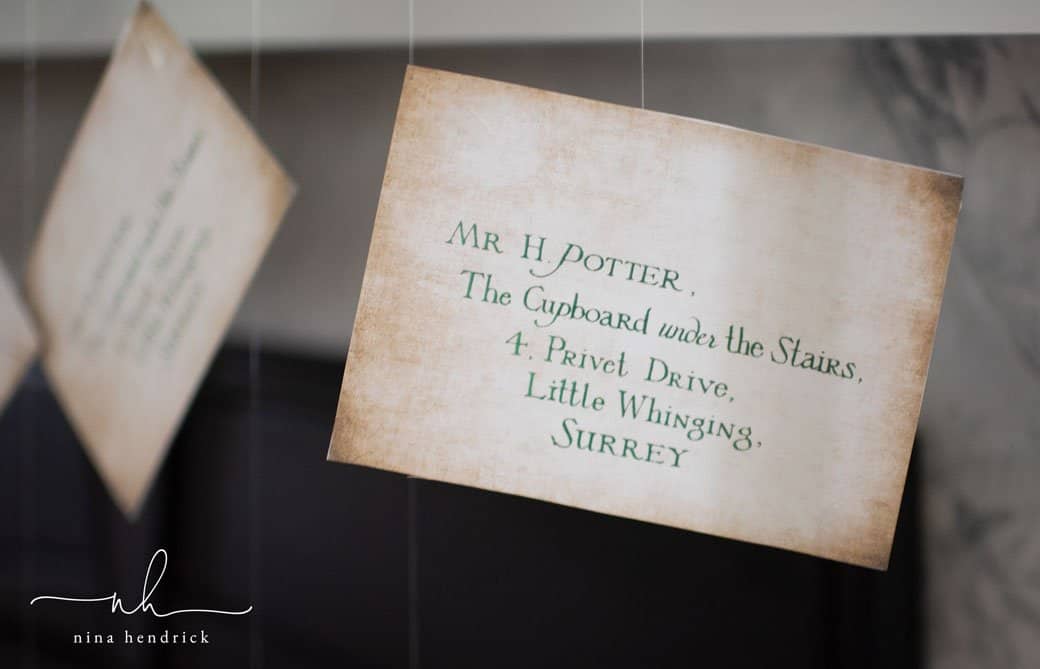 MR H. POTTER,
The Cupboard under the Stairs,
4. Privet Drive,
Little Whinging,
SURREY
nh
nina hendrick